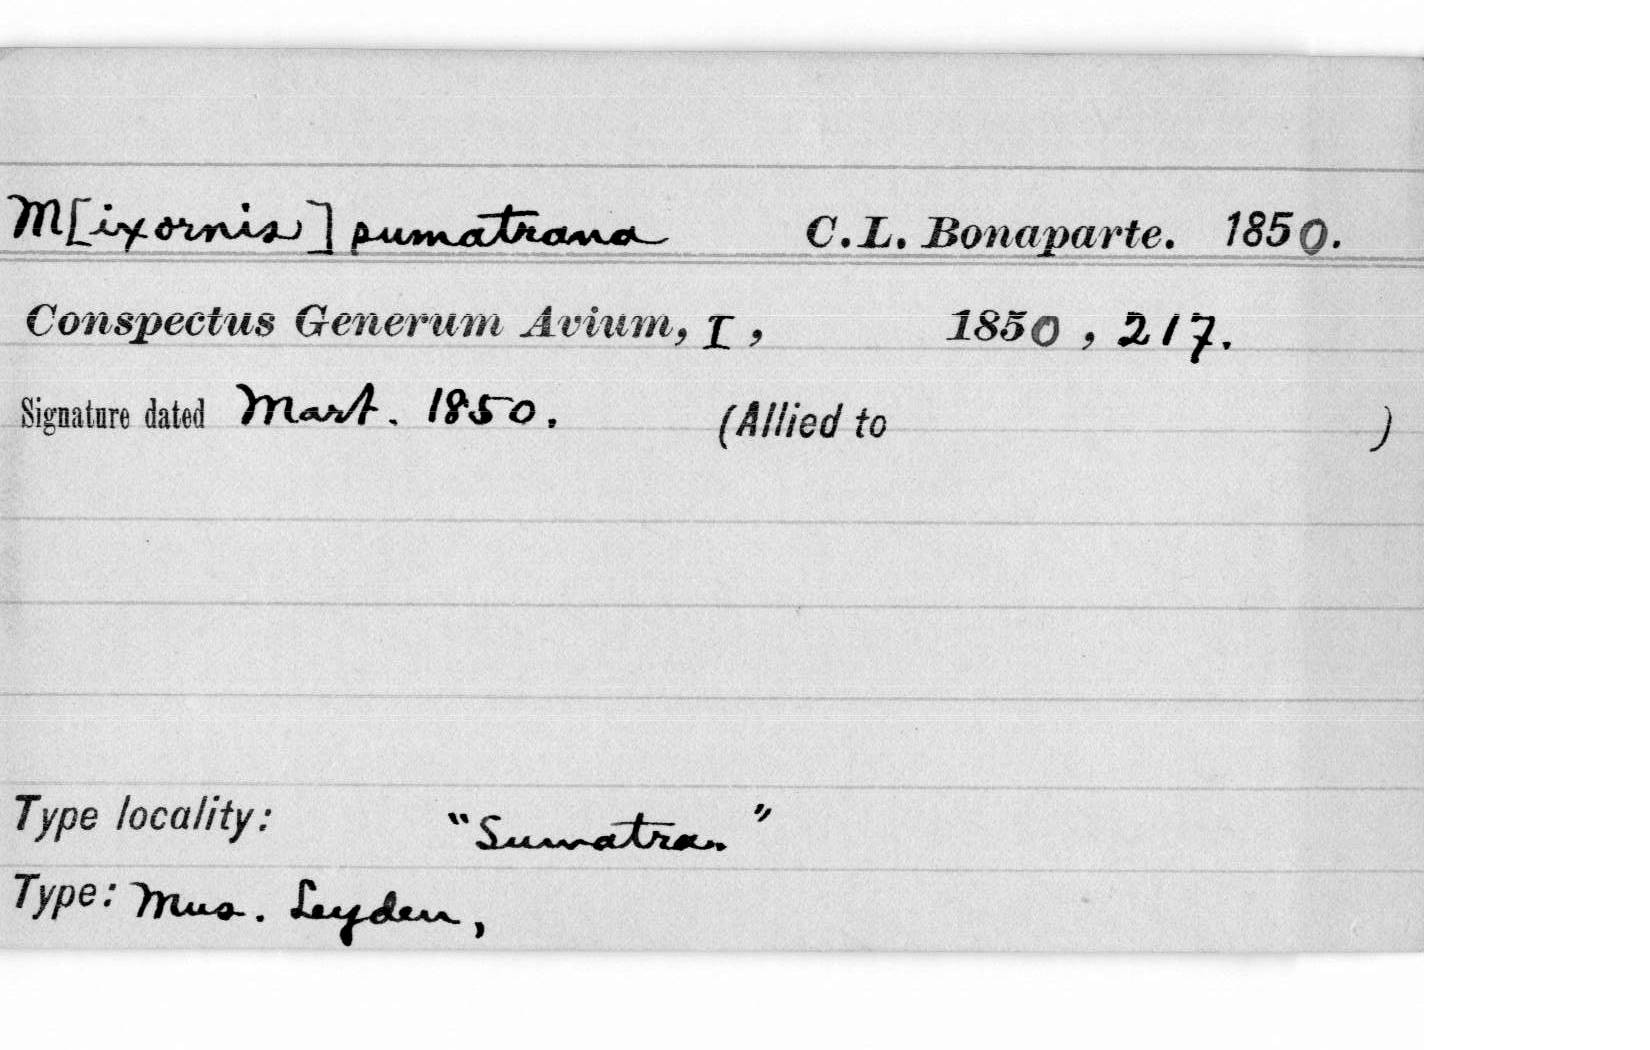 M[ixornis] sumatrana C.L. Bonaparte. 1850.
Conspectus Generum Avium, I, 1850, 217.
Signature dated Mart. 1850. (Allied to )
Type locality: "Sumatra."
Type: Mus. Leyden,